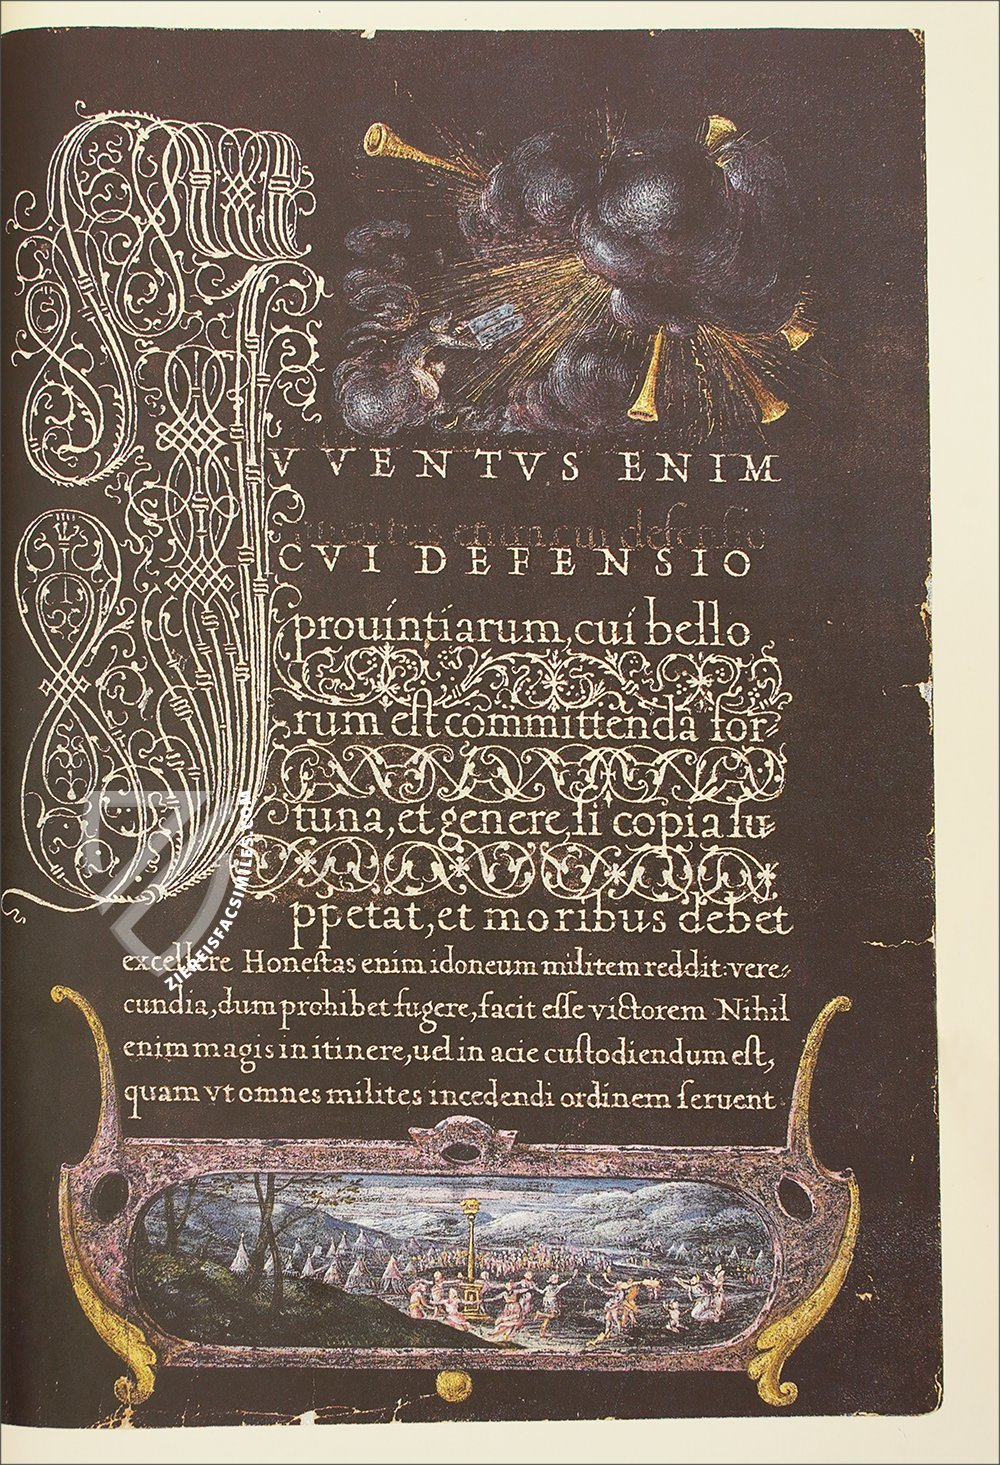 JUVENTVS ENIM
CVI DEFENSIO
prouintiarum, cui bello
rum est committenda for-
tuna, et genere, si copia su-
ppetat, et moribus debet
excellere Honestas enim idoneum militem reddit: vere-
cundia, dum prohibet fugere, facit esse victorem Nihil
enim magis in itinere, uel in acie custodiendum est,
quam vt omnes milites incedendi ordinem seruent
ZIEREISFACSIMILES.COM